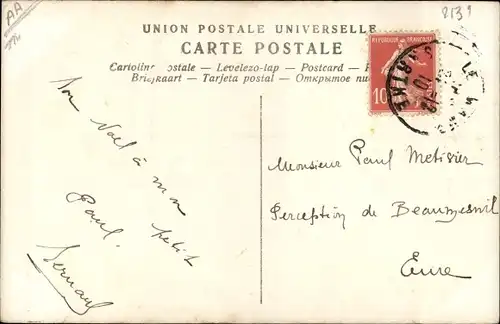 AA
2131
UNION POSTALE UNIVERSELLE
CARTE POSTALE
Cartolina postale — Levelezo-lap — Postcard —
Briefkaart — Tarjeta postal — Открытое
10
Bon Noël à mon petit
Paul.
Bernard
Monsieur Paul Metivier
Perception de Beaumesnil
Eure